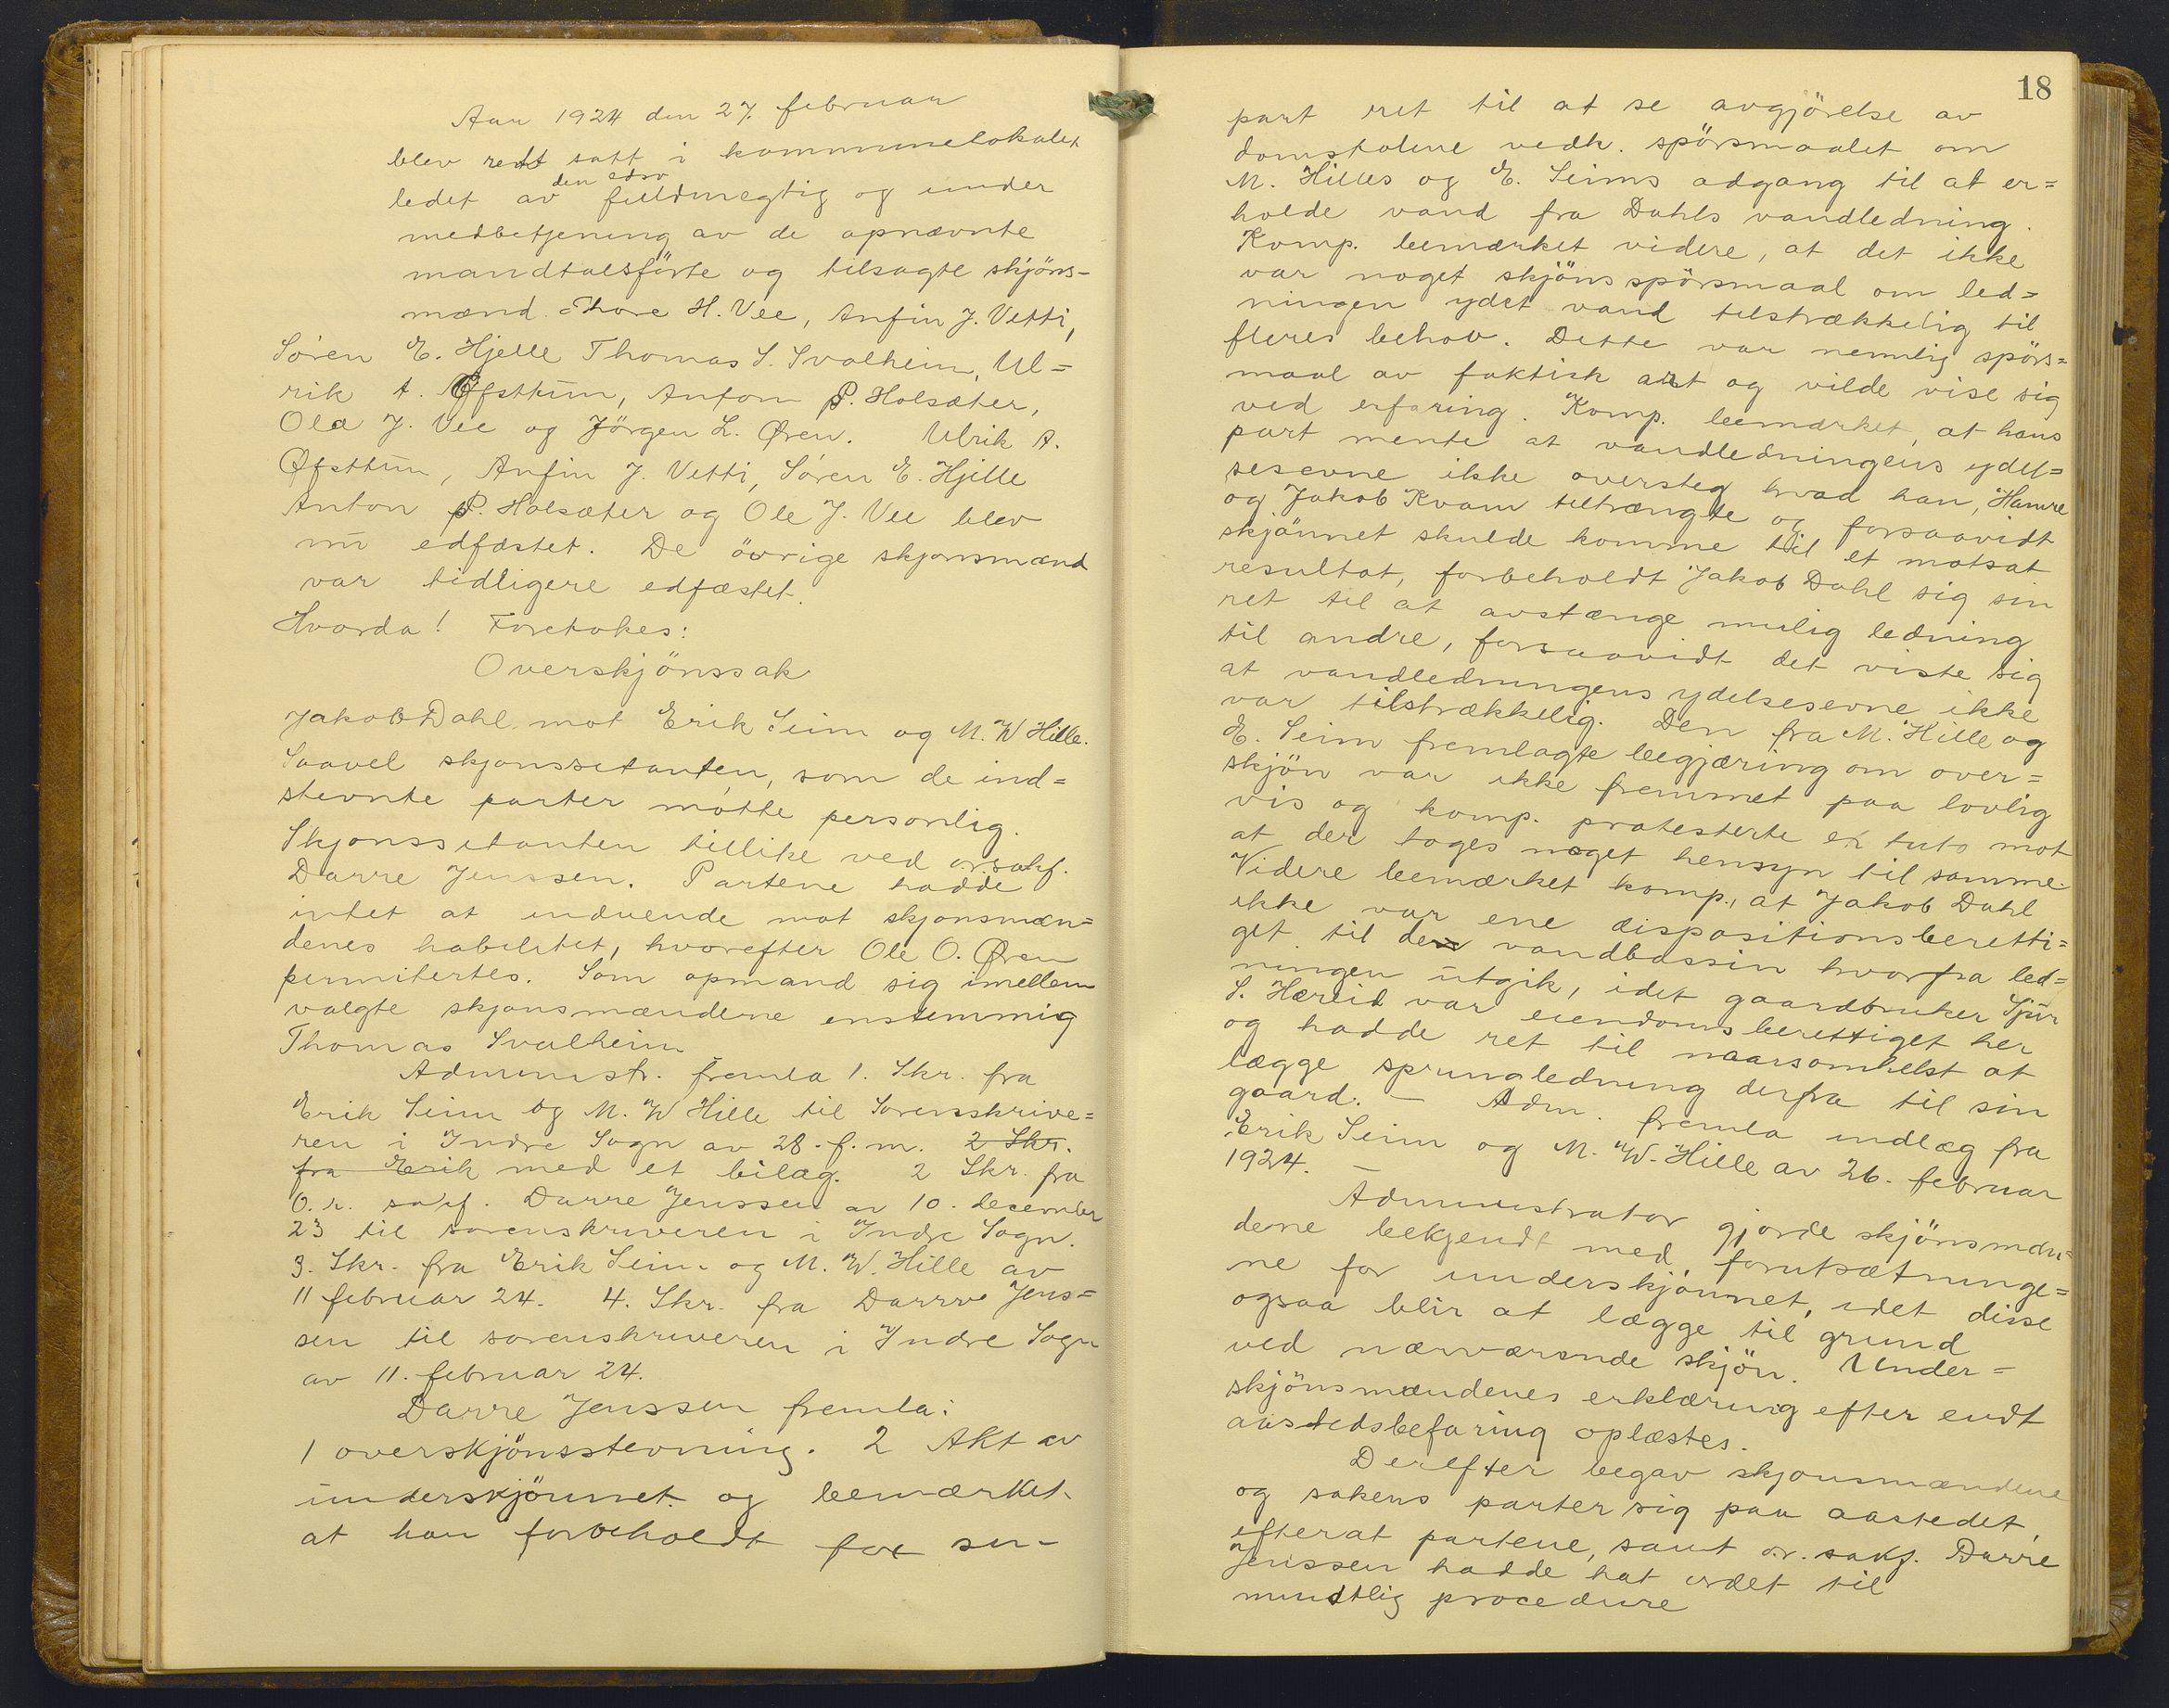 Aar 1924 den 27. februar
blev rett satt i kommunelokalet
ledet av den edsv fuldmægtig og under
medbetjening av de opnævnte
mandtalsførte og tilsagte skjöns-
mænd. Thore H. Vee, Anfin J. Vetti,
Sören E. Hjelle Thomas S. Svalheim, Ul=
rik A. Øfsttun, Anton P. Holsæter,
Ola J. Vee og Jörgen L. Øren. Ulrik A.
Øfsttun, Anfin J. Vetti, Sören E. Hjille
Anton P. Holsæter og Ole J. Vee blev
nu edfæstet. De övrige skjønsmænd
var tidligere edfæstet.
Hvorda! Foretokes:
Overskjönssak
Jakob Dahl mot Erik Seim og M. W Hille.
Saavel skjonssitanten, som de ind=
stevnte parter mötte personlig.
Skjonssitanten tillike ved o.r.sakf.
Darre Jenssen. Partene hadde
intet at indvende mot skjonsmæn=
denes habilitet, hvorefter Ole O. Øren
permitertes. Som opmand sig imellem
valgte skjonsmændene enstemmig
Thomas Svalheim
Administr. fremla 1. Skr. fra
Erik Seim og M. W Hille til Sorenskrive=
ren i Indre Sogn av 28. f. m. 2 Skr.
fra Erik med et bilag. 2 Skr. fra
O. r. sakf. Darre Jenssen av 10. december
23 til sorenskriveren i Indre Sogn.
3. Skr. fra Erik Seim og M. W. Hille av
11 februar 24. 4. Skr. fra Darrre Jens=
sen til sorenskriveren i Indre Sogn
av 11. februar 24.
Darre Jenssen fremla:
1 overskjönsstevning. 2 Akt av
underskjönnet og bemærket
at han forbeholdt for sin
18
part ret til at se avgjörelse av
domstolene vedk. spörsmaalet om
M. Hilles og E. Seims adgang til at er=
holde vand fra Dahls vandledning.
Komp. bemærket videre, at det ikke
var noget skjönsspörsmaal om led=
ningen ydet vand tilstrækkelig til
fleres behov. Dette var nemlig spörs=
maal av faktisk art og vilde vise sig
ved erfaring. Komp. bemærket, at hans
part mente at vandledningens ydel=
sesevne ikke oversteg hvad han, Hamre
og Jakob Kvam tiltrængte og forsaavidt
skjönnet skulde komme til et motsat
resultat, forbeholdt Jakob Dahl sig sin
ret til at avstænge mulig ledning
til andre, forsaavidt det viste sig
at vandledningens ydelsesevne ikke
var tilstrækkelig. Den fra M. Hille og
E. Seim fremlagte begjæring om over=
skjön var ikke fremmet paa lovlig
vis og komp. protesterte ex tuto mot
at der toges noget hensyn til samme.
Videre bemærket komp., at Jakob Dahl
ikke var ene dispositionsberetti=
get til den vandbassin hvorfra led=
ningen utgik, idet gaardbruker
S. Hæreid var eiendomsberettiget her
og hadde ret til naarsomhelst at
lægge sprungledning derfra til sin
gaard. – Adm. fremla indlæg fra
Erik Seim og M. W. Hille av 26. februar
1924.
Administrator gjorde skjönsmæn=
dene bekjendt med forutsætninge=
ne for underskjönnet, idet disse
ogsaa blir at lægge til grund
ved nærværende skjön. Under=
skjönsmændenes erklæring efter endt
aastedsbefaring oplæstes.
Derefter begav skjonsmændene
og sakens parter sig paa aastedet,
efterat partene, samt o.r. sakf. Darre
Jenssen hadde hat ordet til
mundtlig procedure